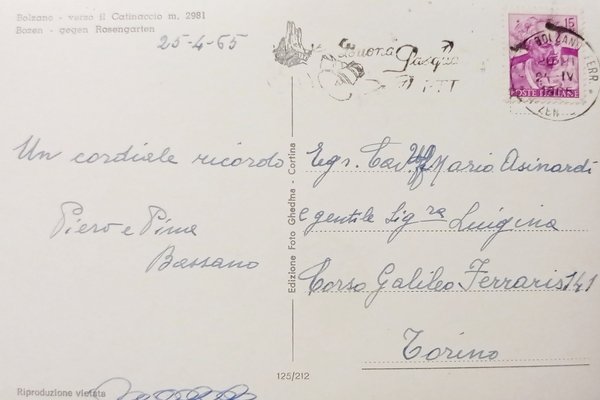 Bolzano - verso il Catinaccio m. 2981
Bozen - gegen Rosengarten
25-4-65
Buona Pasqua
15
POSTE ITALIANE
BOLZANO FERR.
24-IV
Un cordiale ricordo
Piero e Pina
Bassano
Edizione Foto Ghedina - Cortina
Egr. Cav. Uff Mario Asinardi
e gentile Sig ra Luigina
Corso Galileo Ferraris 141
Torino
125/212
Riproduzione vietata